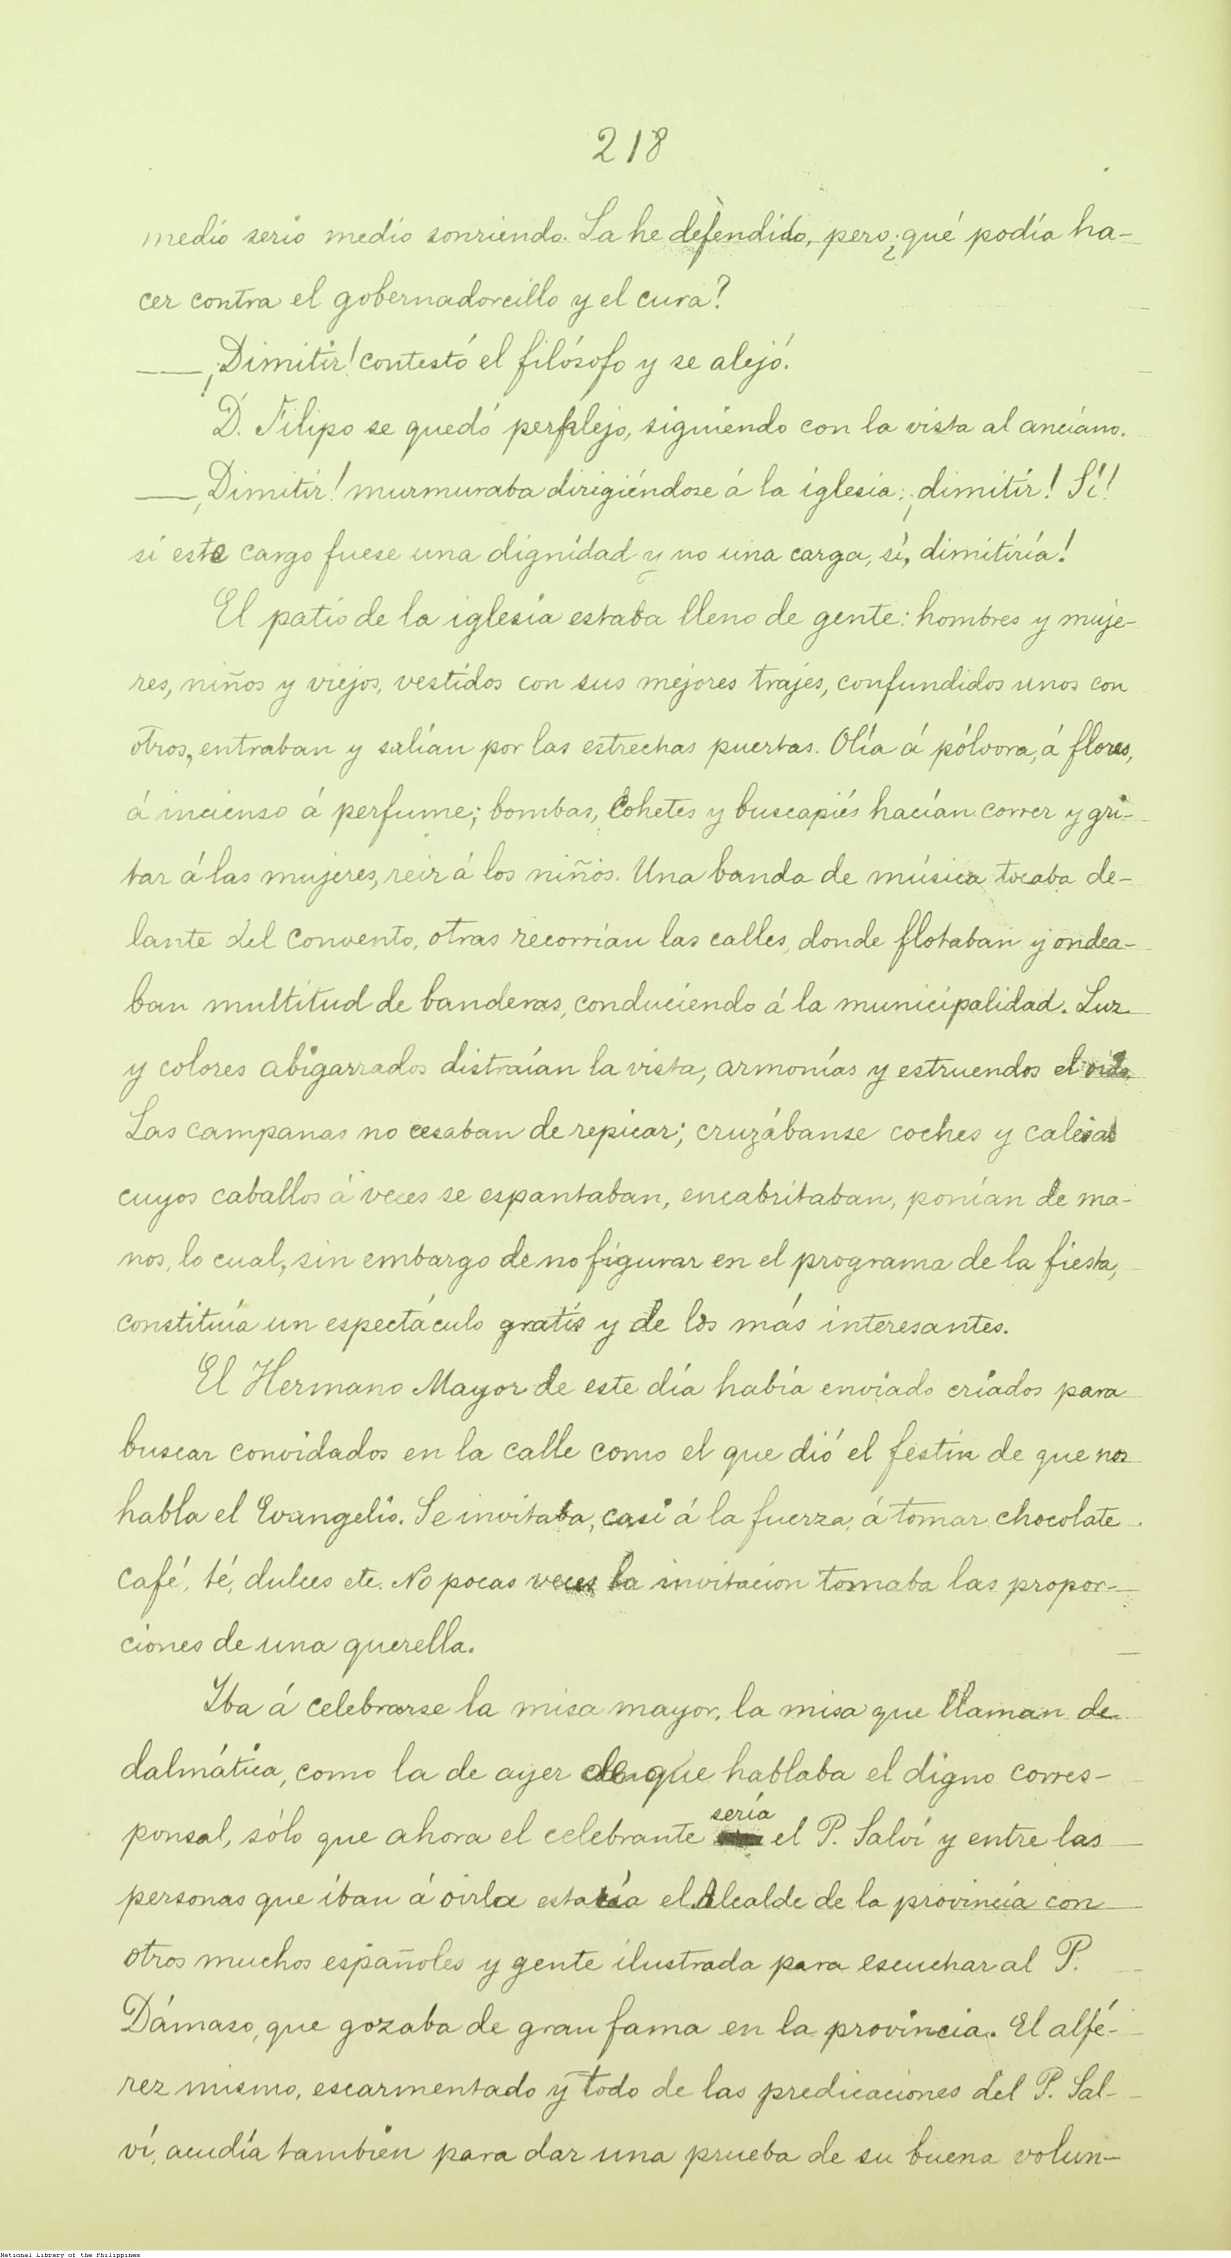 218
medio serio medio sonriendo. La he defendido, pero ¿qué podía ha-
cer contra el gobernadorcillo y el cura?
—¡Dimitir! contestó el filósofo y se alejó.
D. Filipo se quedó perplejo, siguiendo con la vista al anciano.
—¡Dimitir! murmuraba dirigiéndose á la iglesia; ¡dimitir! Sí!
si este cargo fuese una dignidad y no una carga, sí, dimitiría!
El patio de la iglesia estaba lleno de gente: hombres y muje-
res, niños y viejos, vestidos con sus mejores trajes, confundidos unos con
otros, entraban y salían por las estrechas puertas. Olía á pólvora, á flores,
á incienso á perfume; bombas, Cohetes y buscapiés hacían correr y gri-
tar á las mujeres, reir á los niños. Una banda de música tocaba de-
lante del convento, otras recorrían las calles, donde flotaban y ondea-
ban multitud de banderas, conduciendo á la municipalidad. Luz
y colores abigarrados distraían la vista, armonías y estruendos el oido.
Las campanas no cesaban de repicar; cruzábanse coches y calesas
cuyos caballos á veces se espantaban, encabritaban, ponían de ma-
nos, lo cual, sin embargo de no figurar en el programa de la fiesta,
constituía un espectáculo gratis y de los más interesantes.
El Hermano Mayor de este día había enviado criados para
buscar convidados en la calle como el que dió el festín de que nos
habla el Evangelio. Se invitaba, casi á la fuerza, á tomar chocolate
café, té, dulces etc. No pocas veces la invitacion tomaba las propor-
ciones de una querella.
Iba á celebrarse la misa mayor, la misa que llaman de
dalmática, como la de ayer de que hablaba el digno corres-
ponsal, sólo que ahora el celebrante sería el P. Salví y entre las
personas que iban á oirla estaría el Alcalde de la provincia con
otros muchos españoles y gente ilustrada para escuchar al P.
Dámaso, que gozaba de gran fama en la provincia. El alfé-
rez mismo, escarmentado y todo de las predicaciones del P. Sal-
ví, acudía también para dar una prueba de su buena volun-
National Library of the Philippines